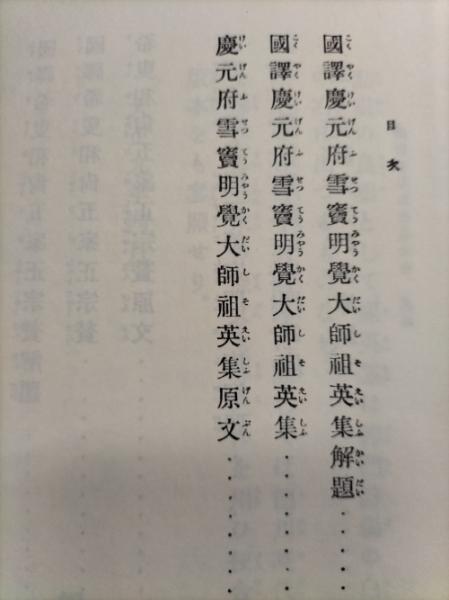 目次
國譯慶元府雪竇明覺大師祖英集解題
國譯慶元府雪竇明覺大師祖英集
慶元府雪竇明覺大師祖英集原文